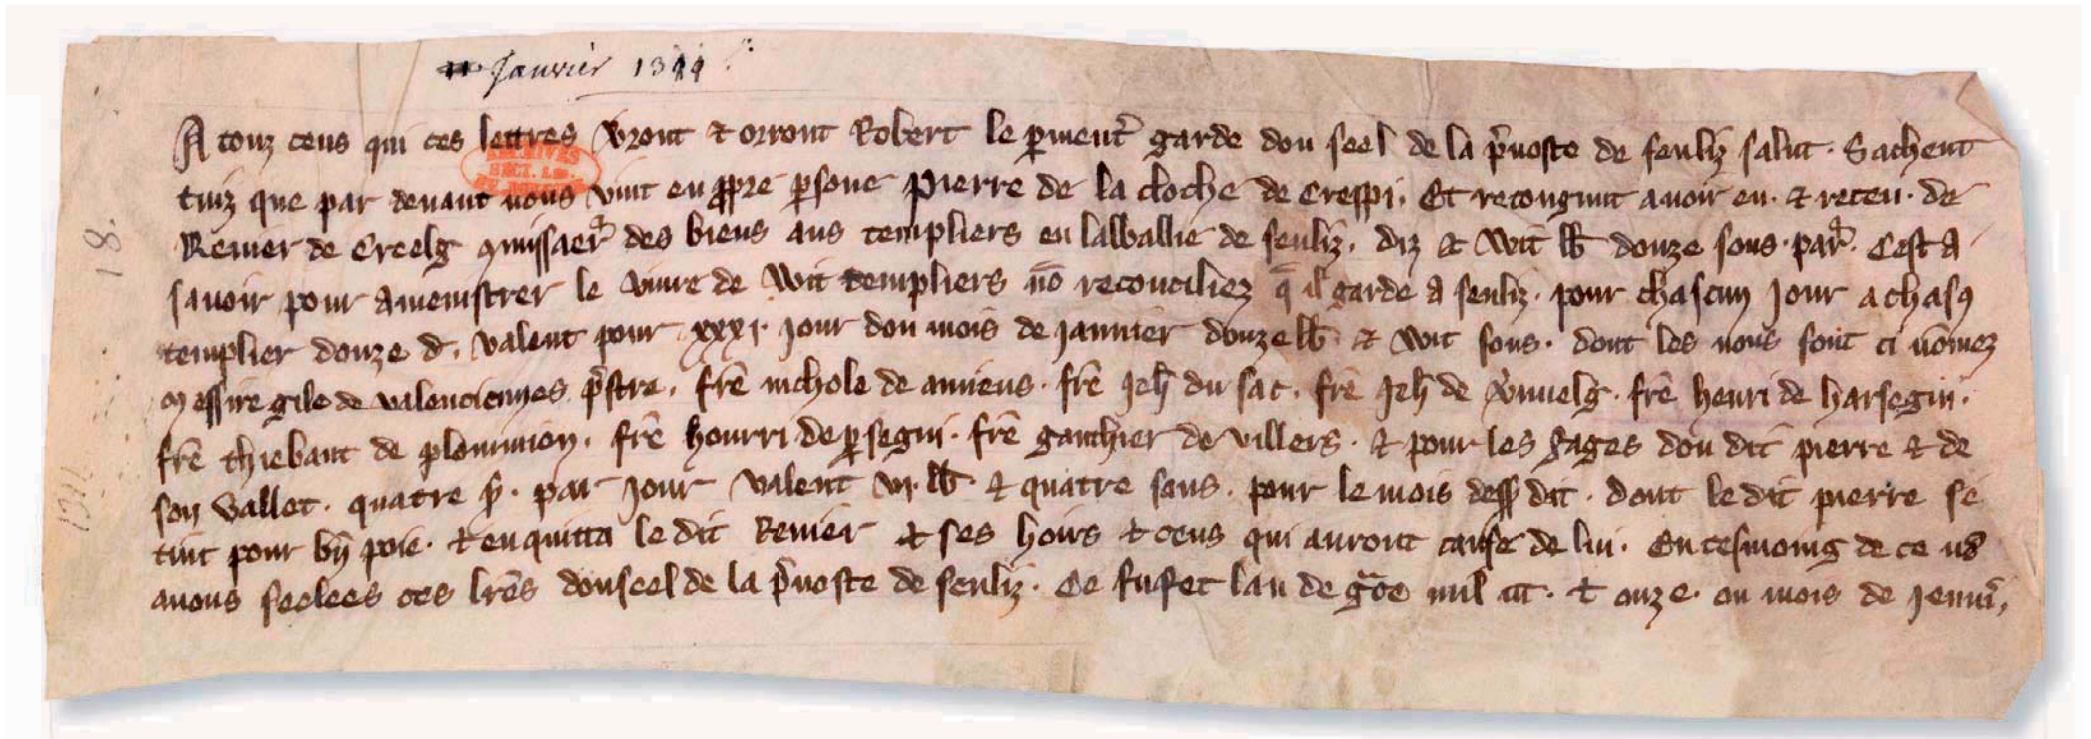 Janvier 1311
A touz ceus qui ces lettres vront et orront Robert le pmentr garde dou seel de la pruoste de senliz salut. Sachent
tuiz que par devant nous vint en ppre psone Pierre de la cloche de Crespi. Et recongnut avoir eu. et receu. de
Renier de Creelg 9missaer des biens aus templiers en la ballie de senliz. diz et wit lb douze sous. par. Cest a
savoir pour amenistrer le vivre de wit templiers no reconciliez q il garde a senliz. pour chascun jour a chasq
templier douze d. valent pour xxxi. jour dou mois de janvier douze lb. et wit sous. dont les nons sont ci nomez
Messire gile de valenciennes pstre. fre nichole de amiens. fre Jeh du sac. fre Jeh de vrnuelg. fre henri de harsegni.
fre thiebaut de ploumion. fre hourri de psegni. fre gauthier de villers. et pour les gages dou dit pierre et de
son vallet. quatre s. par jour valent vi. lb. et quatre sous. pour le mois dess dit. dont le dit pierre se
tint pour bn poie. et en quitta le dit Renier et ses hoirs et ceus qui auront cause de lui. En tesmoing de ce no
avons seelees ces lres dou seel de la pvoste de senliz. Ce fu fet lan de gce mil ccc. et onze. ou mois de jenvi.
18.
1311
ARCHIVES